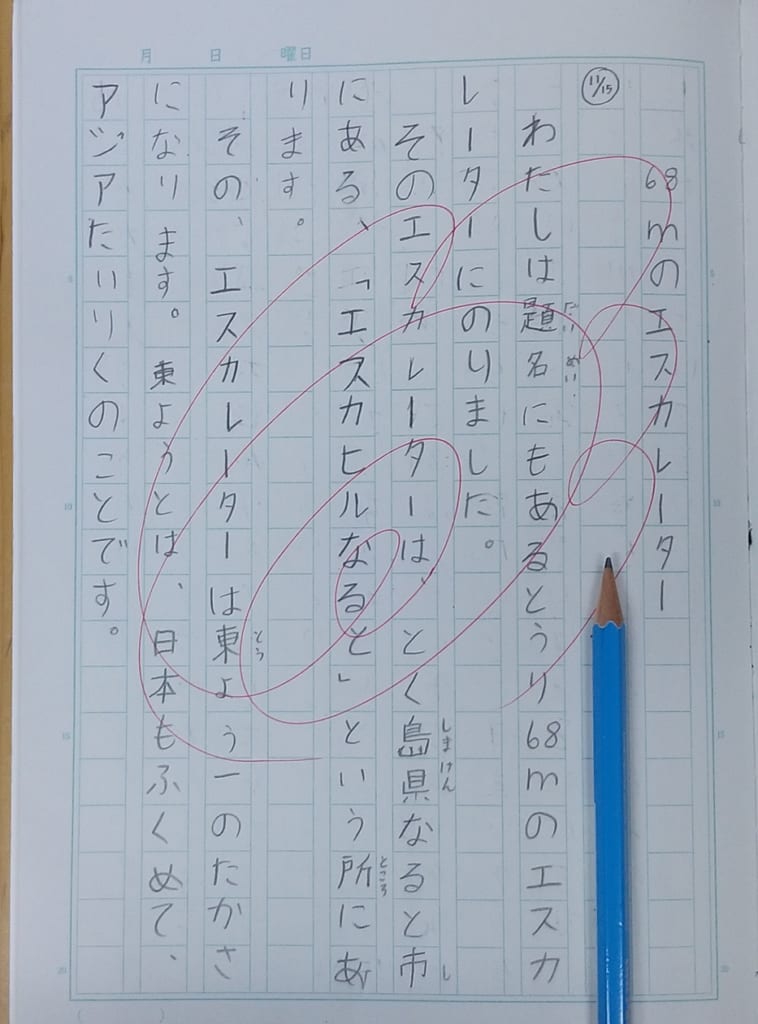 月 日 曜日
68mのエスカレーター
11/15
わたしは題名にもあるとうり68mのエスカ
だいめい
レーターにのりました。
そのエスカレーターは、とく島県なると市
しまけん
し
にある、「エスカヒルなると」という所にあ
ところ
ります。
その、エスカレーターは東よう一のたかさ
とう
になります。東ようとは、日本もふくめて、
アジアたいりくのことです。